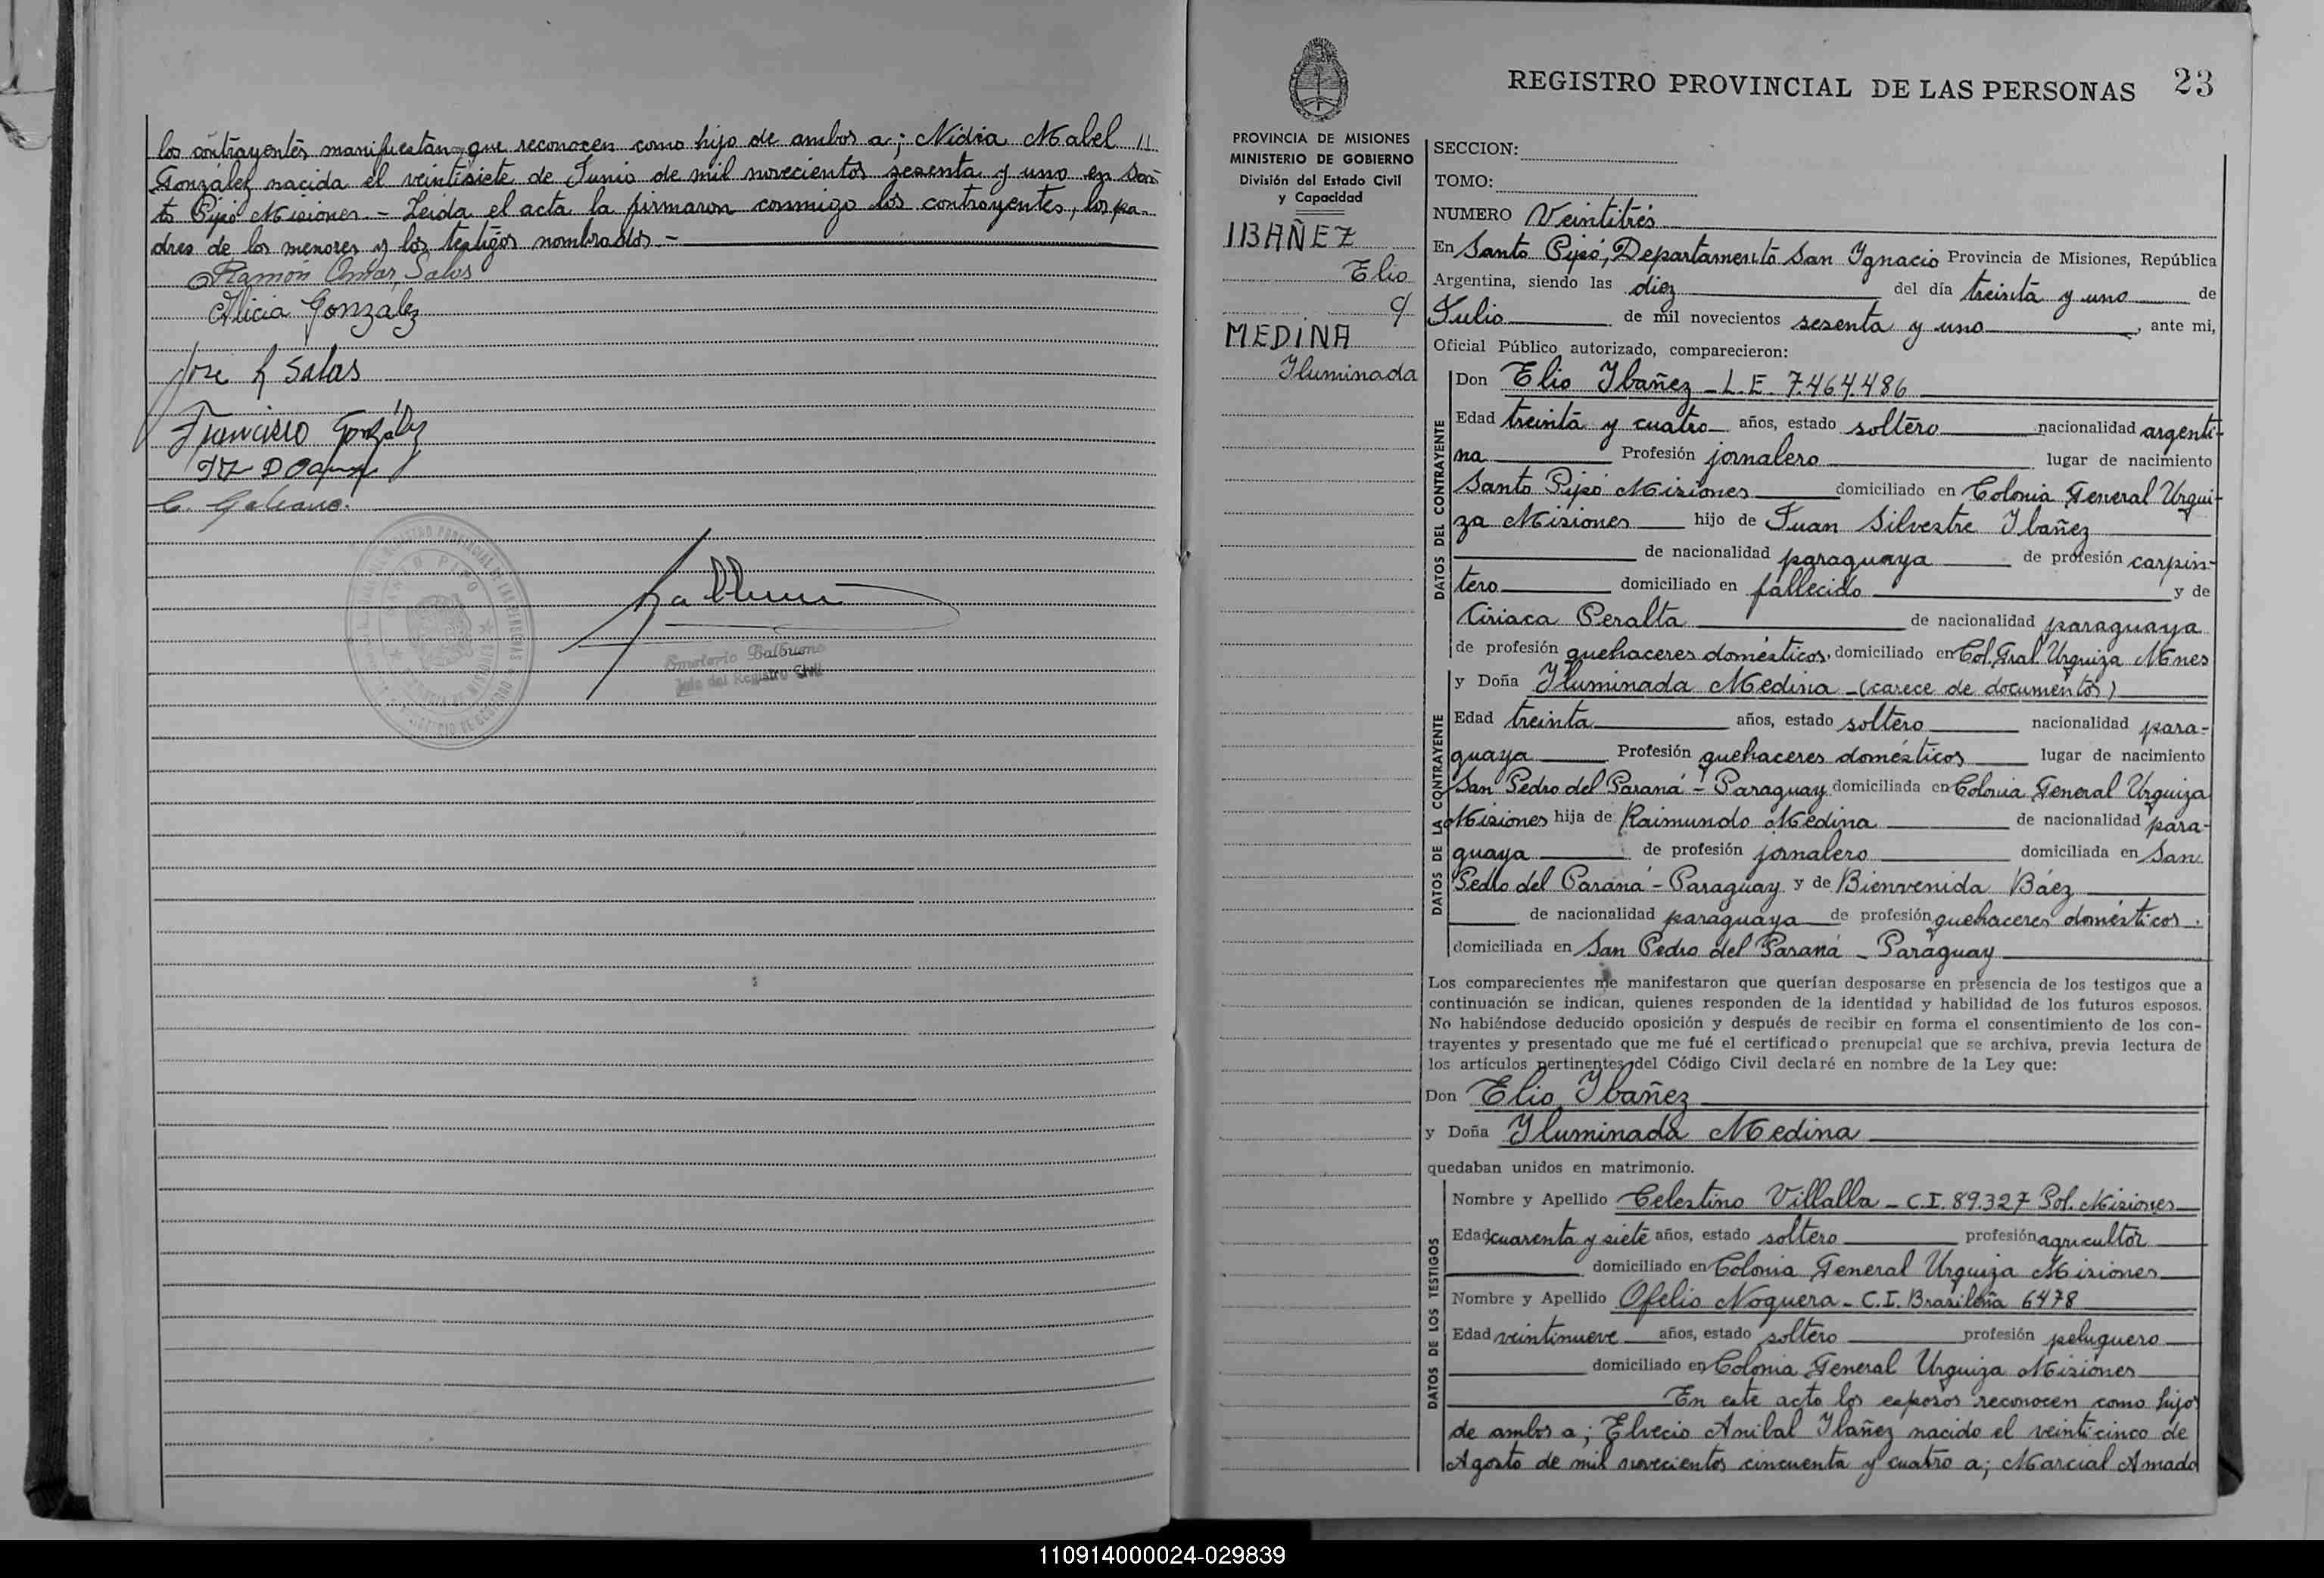 los contrayentes manifiestan que reconocen como hijo de ambos a; Nidia Mabel
González nacida el veintisiete de Junio de mil novecientos sesenta y uno en San-
to Pipó Misiones - Leida el acta la firmaron conmigo los contrayentes, los pa-
dres de los menores y los testigos nombrados -
Ramón Omar Salas
Alicia Gonzalez
Jose R Salas
Francisco González
C. Galeano.
SANTO PIPO
Emeterio Balbuena
Jefe del Registro Civil
REGISTRO PROVINCIAL DE LAS PERSONAS 23
PROVINCIA DE MISIONES
MINISTERIO DE GOBIERNO
División del Estado Civil
y Capacidad
IBAÑEZ
Elio
c/
MEDINA
Iluminada
SECCION:
TOMO:
NUMERO Veintitrés
En Santo Pipó, Departamento San Ignacio Provincia de Misiones, República
Argentina, siendo las diez del día treinta y uno de
Julio de mil novecientos sesenta y uno, ante mi,
Oficial Público autorizado, comparecieron:
DATOS DEL CONTRAYENTE
Don Elio Ibañez - L.E. 7.464.486
Edad treinta y cuatro años, estado soltero nacionalidad argenti-
na Profesión jornalero lugar de nacimiento
Santo Pipó Misiones domiciliado en Colonia General Urqui-
za Misiones hijo de Juan Silvestre Ibañez
de nacionalidad paraguaya de profesión carpin-
tero domiciliado en fallecido y de
Ciriaca Peralta de nacionalidad paraguaya
de profesión quehaceres domésticos, domiciliado en Col. Gral. Urquiza Mnes
DATOS DE LA CONTRAYENTE
y Doña Iluminada Medina - (carece de documentos)
Edad treinta años, estado soltero nacionalidad para-
guaya Profesión quehaceres domésticos lugar de nacimiento
San Pedro del Paraná - Paraguay domiciliada en Colonia General Urquiza
Misiones hija de Raimundo Medina de nacionalidad para-
guaya de profesión jornalero domiciliada en San
Pedro del Paraná - Paraguay y de Bienvenida Báez
de nacionalidad paraguaya de profesión quehaceres domésticos.
domiciliada en San Pedro del Paraná - Paraguay
Los comparecientes me manifestaron que querían desposarse en presencia de los testigos que a
continuación se indican, quienes responden de la identidad y habilidad de los futuros esposos.
No habiéndose deducido oposición y después de recibir en forma el consentimiento de los con-
trayentes y presentado que me fué el certificado prenupcial que se archiva, previa lectura de
los artículos pertinentes del Código Civil declaré en nombre de la Ley que:
Don Elio Ibañez
y Doña Iluminada Medina
quedaban unidos en matrimonio.
DATOS DE LOS TESTIGOS
Nombre y Apellido Celestino Villalla - C.I. 89.327 Pol. Misiones
Edad cuarenta y siete años, estado soltero profesión agricultor
domiciliado en Colonia General Urquiza Misiones
Nombre y Apellido Ofelio Noguera - C.I. Brasileña 6478
Edad veintinueve años, estado soltero profesión peluquero
domiciliado en Colonia General Urquiza Misiones
En este acto los esposos reconocen como hijos
de ambos a; Elvecio Anibal Ibañez nacido el veinticinco de
Agosto de mil novecientos cincuenta y cuatro a; Marcial Amado
110914000024-029839